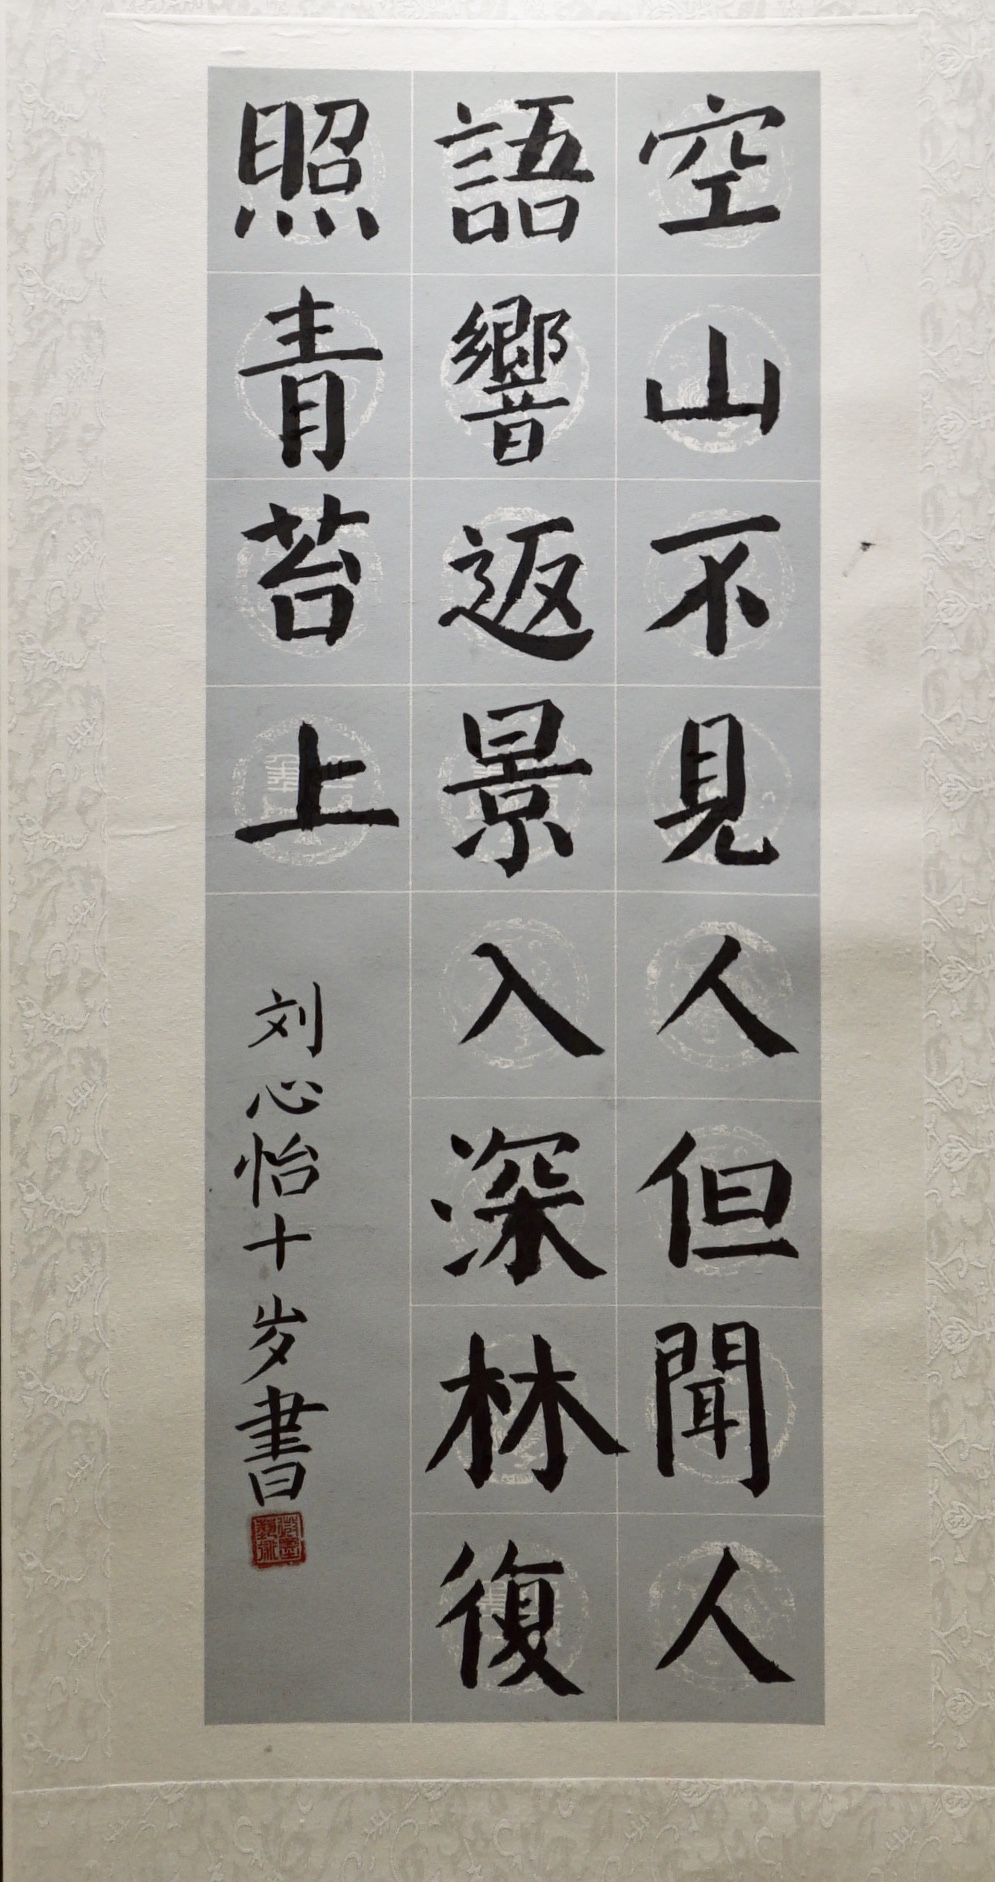 空山不見人但聞人
語響返景入深林復
照青苔上
刘心怡十岁書